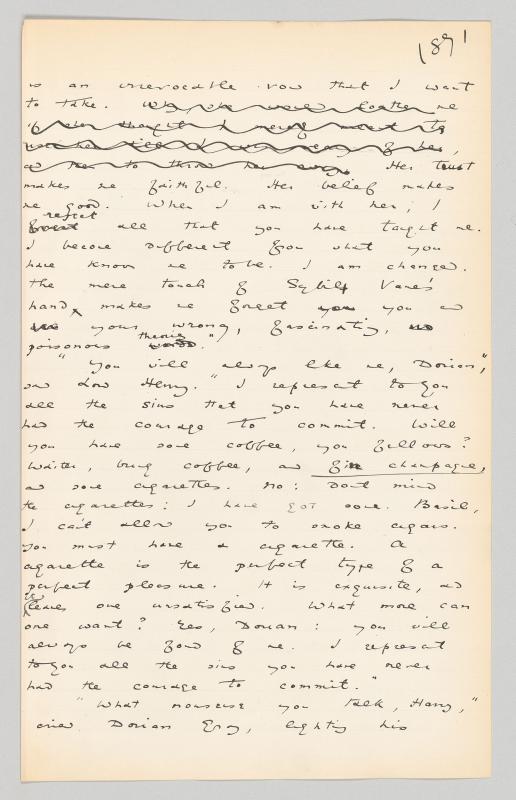 (89)
is an irrevocable vow that I want
to take. Why, she would loathe me
if she thought I merely meant to
her till I was weary of her,
and then to throw her away. Her trust
makes me faithful. Her belief makes
me good. When I am with her, I
regret
forget all that you have taught me.
I become different from what you
have known me to be. I am changed.
The mere touch of Sybil Vane's
hand makes me forget you you and
your wrong, fascinating,
theories
poisonous words."
"You will always like me, Dorian,"
said Lord Henry. "I represent to you
all the sins that you have never
had the courage to commit. Will
you have some coffee, you fellows?
Waiter, bring coffee, and fine champagne,
and some cigarettes. No: don't mind
the cigarettes: I have got some. Basil,
I can't allow you to smoke cigars.
You must have a cigarette. A
cigarette is the perfect type of a
perfect pleasure. It is exquisite, and
leaves one unsatisfied. What more can
one want? Yes, Dorian: you will
always be fond of me. I represent
to you all the sins you have never
had the courage to commit."
"What nonsense you talk, Harry,"
cried Dorian Gray, lighting his